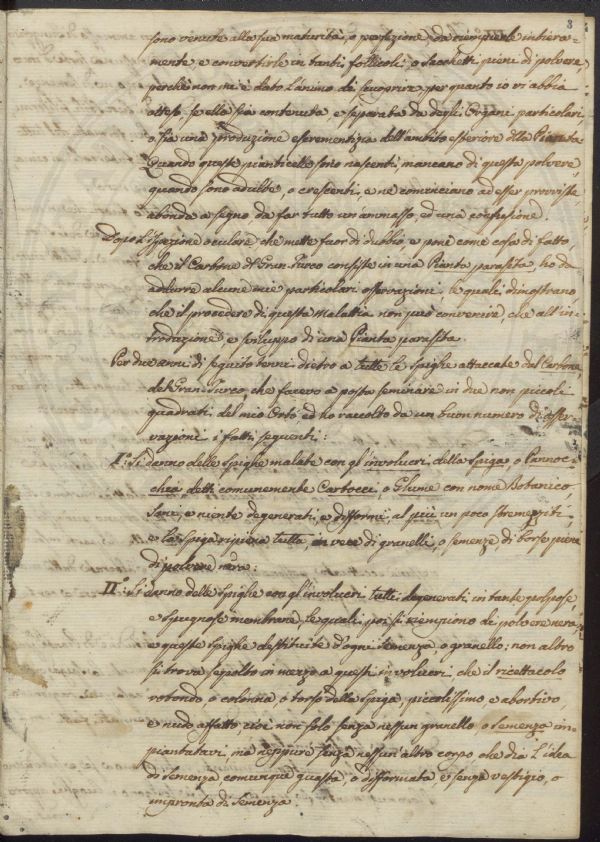 3
sono venute alla sua maturità, o perfezione da riempirle intiera-
mente e convertirle in tanti follicoli, o sacchetti pieni di polvere,
perchè non mi è dato l'animo di scuoprire per quanto io vi abbia
atteso, se ella sia contenuta, e separata da degli Organi particolari
o sia una produzione escrementizia dell'ambito esteriore della Pianta
Quando queste pianticelle sono nascenti, mancano di questa polvere,
quando sono adulte, o crescenti, e ne cominciano ad esser provviste
abonda a segno da far tutto un ammasso, ed una confusione.
Dopo l'Ispezione oculare, che mette fuor di dubbio, e pone come cosa di fatto,
che il Carbone del Gran-Turco consiste in una Pianta parasita, ho da
addurre alcune mie particolari osservazioni, le quali dimostrano,
che il procedere di questa malattia non può convenire, che all'in-
troduzione, e sviluppo di una Pianta parasita.
Per due anni di seguito tenni dietro a tutte le Spighe attaccate dal Carbone
del Gran-Turco, che facevo a posta seminare in due non piccoli
quadrati del mio Orto, ed ho raccolto da un buon numero di osser-
vazioni i fatti seguenti:
I.° Si danno delle Spighe malate con gl'involucri della Spiga, o Pannoc-
chia detti comunemente Cartocci, o Glume con nome Botanico,
sani, e niente degenerati, e difformi, al più un poco
e la Spiga ripiena tutta, in vece di granelli, o semenze, di borse piene
di polvere nera:
II.° Si danno delle Spighe con gl'involucri tutti degenerati in tante polpose,
e spugnose membrane, le quali poi si riempiono di polvere nera,
e queste Spighe destituite d'ogni semenza, o granello; non altro
si trova sepolto in mezzo a questi involucri, che il ricettacolo
rotondo, o colonna, o torso della Spiga, piccolissimo, e abortivo,
e nudo affatto, cioè non solo senza nessun granello, o Semenza im-
piantatavi, ma neppure senza nessun'altro corpo che dia l'idea
di Semenza comunque guasta, o difformata, e senza vestigio, o
impronta di Semenza.